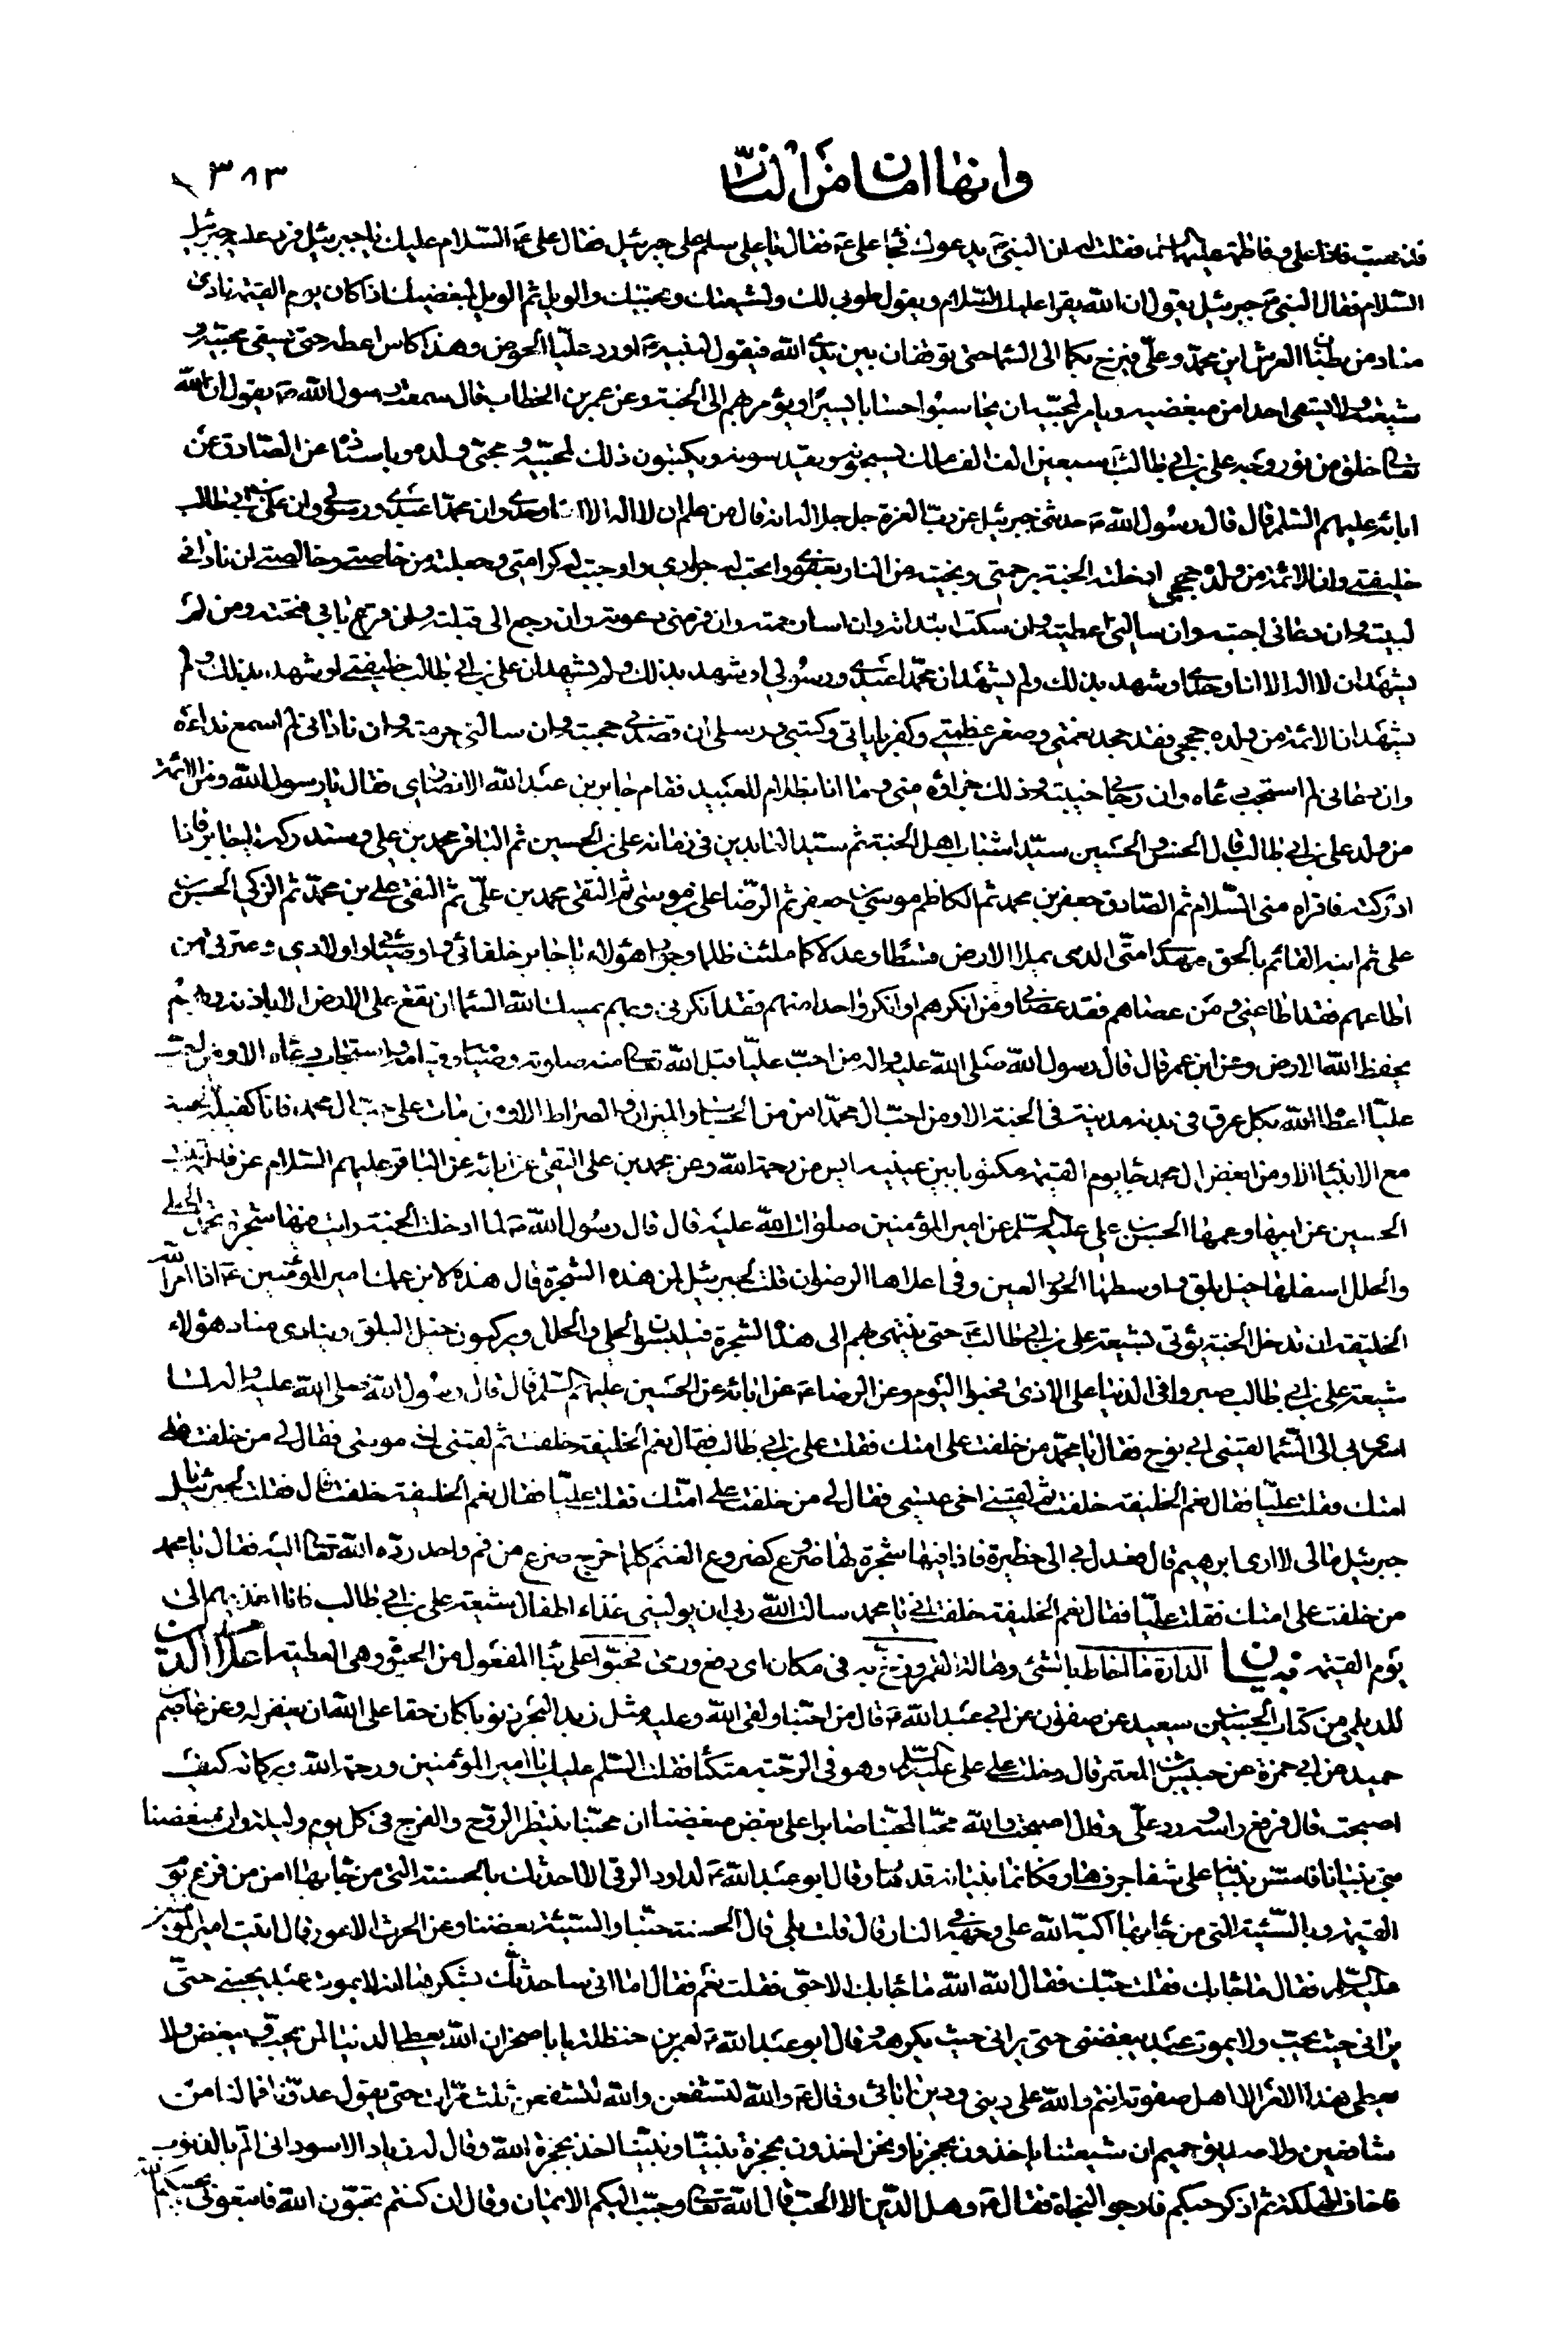 وانها امان من النار
٣٨٣
فذهبت فاذا على و فاطمة عليهما السلم فقلت لهما ان النبى ص يدعوك فجاء على ع فقال يا على سلم على جبرئيل فقال على ع السّلام عليك يا جبرئيل فرد عليه جبرئيل
السّلام فقال النبى ص جبرئيل يقول ان اللّه يقرأ عليك السّلام و يقول طوبى لك و لشيعتك و محبّيك و الويل ثم الويل لمبغضيك اذا كان يوم القيمة نادى
مناد من بطنان العرش اين محمّد و علىّ فيزخ بكما الى السّماء حتى توقفان بين يدى اللّه فيقول لنبيه ص اورد عليّا الحوض و هذا كاس اعطه حتى يسقى محبّيه و
شيعته و لا يسقى احدا من مبغضيه و يامر لمحبّيه ان يحاسبوا حسابا يسيرا و يؤمر بهم الى الجنة و عن عمر بن الخطاب قال سمعت رسول اللّه ص يقول ان اللّه
تعالى خلق من نور وجه على بن ابى طالب سبعين الف الف ملك يسبحونه و يقدسونه و يكتبون ذلك لمحبّيه و محبّى ولده و باسناده عن الصّادق عن
ابائه عليهم السّلم قال قال رسول اللّه ص حدثنى جبرئيل عن ربّ العزة جل جلاله انه قال من علم ان لا اله الا انا وحدى و ان محمّدا عبدى و رسولى و ان على بن ابى طالب
خليفتى و ان الائمة من ولده حججى ادخلته الجنة برحمتى و نجيته من النار بعفوى و ابحت له جوارى و اوجبت له كرامتى و جعلته من خاصتى و خالصتى ان نادانى
لبيته و ان دعانى اجبته و ان سالنى اعطيته و ان سكت ابتدأته و ان اساء رحمته و ان فر منى دعوته و ان رجع الى قبلته و ان قرع بابى فتحته و من لم
يشهد ان لا اله الا انا وحدى او شهد بذلك و لم يشهد ان محمّدا عبدى و رسولى او شهد بذلك و لم يشهد ان على بن ابى طالب خليفتى او شهد بذلك و لم
يشهد ان الائمة من ولده حججى فقد جحد نعمتى و صغر عظمتى و كفر باياتى و كتبى و رسلى ان قصدنى حجبته و ان سالنى حرمته و ان نادانى لم اسمع نداءه
و ان دعانى لم استجب دعاه و ان رجانى خيبته و ذلك جزاؤه منى و ما انا بظلام للعبيد فقام جابر بن عبد اللّه الانصارى فقال يا رسول اللّه و من الائمة
من ولد على بن ابى طالب قال الحسن و الحسين سيّدا شباب اهل الجنة ثم سيّد العابدين فى زمانه على بن الحسين ثم الباقر محمد بن على و ستدركه يا جابر فاذا
ادركته فاقراه منى السّلام ثم الصّادق جعفر بن محمد ثم الكاظم موسى بن جعفر ثم الرّضا على بن موسى ثم التقى محمد بن علىّ ثم النقى على بن محمّد ثم الزكى الحسن بن
على ثم ابنه القائم بالحق مهدى امّتى الذى يملأ الارض قسطا و عدلا كما ملئت ظلما و جورا هؤلاء يا جابر خلفائى و اوصيائى و اولادى و عترتى من
اطاعهم فقد اطاعنى و من عصاهم فقد عصانى و من انكرهم او انكر واحدا منهم فقد انكرنى و بهم يمسك اللّه السّماء ان تقع على الارض الا باذنه و بهم
يحفظ اللّه الارض و عن ابن عمر قال قال رسول اللّه صلى اللّه عليه و اله من احبّ عليّا قبل اللّه تعالى منه صلوته و صيامه و قيامه و استجاب دعاه الا و من احب
عليّا اعطاه اللّه بكل عرق فى بدنه مدينة فى الجنة الا و من احبّ ال محمّد امن من الحساب و الميزان و الصراط الا و من مات على حب ال محمد فانا كفيله بالجنة
مع الانبياء الا و من ابغض ال محمد جاء يوم القيمة مكتوبا بين عينيه ايس من رحمة اللّه و عن محمد بن على التقى عن ابائه عن الباقر عليهم السّلام عن فاطمة بنت
الحسين عن ابيها و عمها الحسن بن على عليهم السّلم عن امير المؤمنين صلوات اللّه عليه قال قال رسول اللّه ص لما ادخلت الجنة رايت فيها شجرة تحمل الحلى
و الحلل اسفلها خيل بلق و اوسطها الحور العين و فى اعلاها الرضوان قلت لجبرئيل لمن هذه الشجرة قال هذه لابن عمك امير المؤمنين ع اذا امر اللّه
الخليقة ان تدخل الجنة يؤتى بشيعة على بن ابى طالب ع حتى ينتهى بهم الى هذه الشجرة فيلبسون الحلى و الحلل و يركبون خيل البلق و ينادى مناد هؤلاء
شيعة على بن ابى طالب صبروا فى الدنيا على الاذى فحبوا اليوم و عن الرضا ع عن ابائه عن الحسين عليهم السّلم قال قال رسول اللّه صلى اللّه عليه و اله لما
اسرى بى الى السّماء لقينى ابى نوح فقال يا محمّد من خلفت على امتك فقلت على بن ابى طالب فقال نعم الخليفة خلفت ثم لقينى اخى موسى فقال لى من خلفت على
امتك فقلت عليّا فقال نعم الخليفة خلفت ثم لقينى اخى عيسى فقال لى من خلفت على امّتك فقلت عليّا فقال نعم الخليفة خلفت قال فقلت لجبرئيل يا
جبرئيل مالى لا ارى ابرهيم قال فعدل بى الى حظيرة فاذا فيها شجرة لها ضروع كضروع الغنم كلما خرج ضرع من فم واحد ردّه اللّه تعالى اليه فقال يا محمد
من خلفت على امتك فقلت عليّا فقال نعم الخليفة خلفت انى يا محمد سالت اللّه ربى ان يولينى غذاء اطفال شيعة على بن ابى طالب فانا اغذيهم الى
يوم القيمة بيان الدارة ما احاط بالشئ و هالة القمر و زخ به فى مكان اى دفع و رمى فحبوا على بناء المفعول من الحبوة و هى العطية اعلام الدين
للديلمى من كتاب الحسين بن سعيد عن صفوان عن ابى عبد اللّه ع قال من احبّنا و لقى اللّه و عليه مثل زبد البحر ذنوبا كان حقا على اللّه ان يغفر له و عن عاصم بن
حميد عن ابى حمزة عن حبيش بن المعتمر قال دخلت على على عليه السّلم و هو فى الرّحبة متكئا فقلت السّلم عليك يا امير المؤمنين و رحمة اللّه و بركاته كيف
اصبحت قال فرفع راسه و رد علىّ و قال اصبحت و اللّه محبّا لمحبّنا صابرا على بغض مبغضنا ان محبّنا ينتظر الروح و الفرج فى كل يوم و ليلة و ان مبغضنا
بنى بنيانا فاسّس بنيانه على شفا جرف هار فكانما بنيانه قد هار و قال ابو عبد اللّه ع لداود الرقى الا احدثك بالحسنة التى من جاء بها امن من فزع يوم
القيمة و بالسّيئة التى من جاء بها اكبّه اللّه على وجهه فى النار قال قلت بلى قال الحسنة حبّنا و السّيئة بغضنا و عن الحرث الاعور قال اتيت امير المؤمنين
عليه السّلم فقال ما جاء بك فقلت حبّك فقال اللّه اللّه ما جاء بك الا حبّى فقلت نعم فقال اما انى ساحدثك بشكرها انه لا يموت عبد يحبنى حتّى
يرانى حيث يحبّ و لا يموت عبد يبغضنى حتى يرانى حيث يكره و قال ابو عبد اللّه ع لعمر بن حنظلة يا با صخر ان اللّه يعطى الدنيا لمن يحبّ و يبغض و لا
يعطى هذا الامر الا اهل صفوته انتم و اللّه على دينى و دين ابائى و قال ع و اللّه لنشفعن و اللّه لنشفعن ثلث مرّات حتى يقول عدوّنا فما لنا من
شافعين و لا صديق حميم ان شيعتنا ياخذون بحجزنا و نحن اخذون بحجزة نبينّا و نبيّنا اخذ بحجزة اللّه و قال له زياد الاسود انى الم بالذنوب
فاخاف الهلكة ثم اذكر حبكم فارجو النجاة فقال ع و هل الدّين الا الحبّ قال اللّه تعالى و حبّب اليكم الايمان و قال ان كنتم تحبّون اللّه فاتبعونى يحببكم اللّه